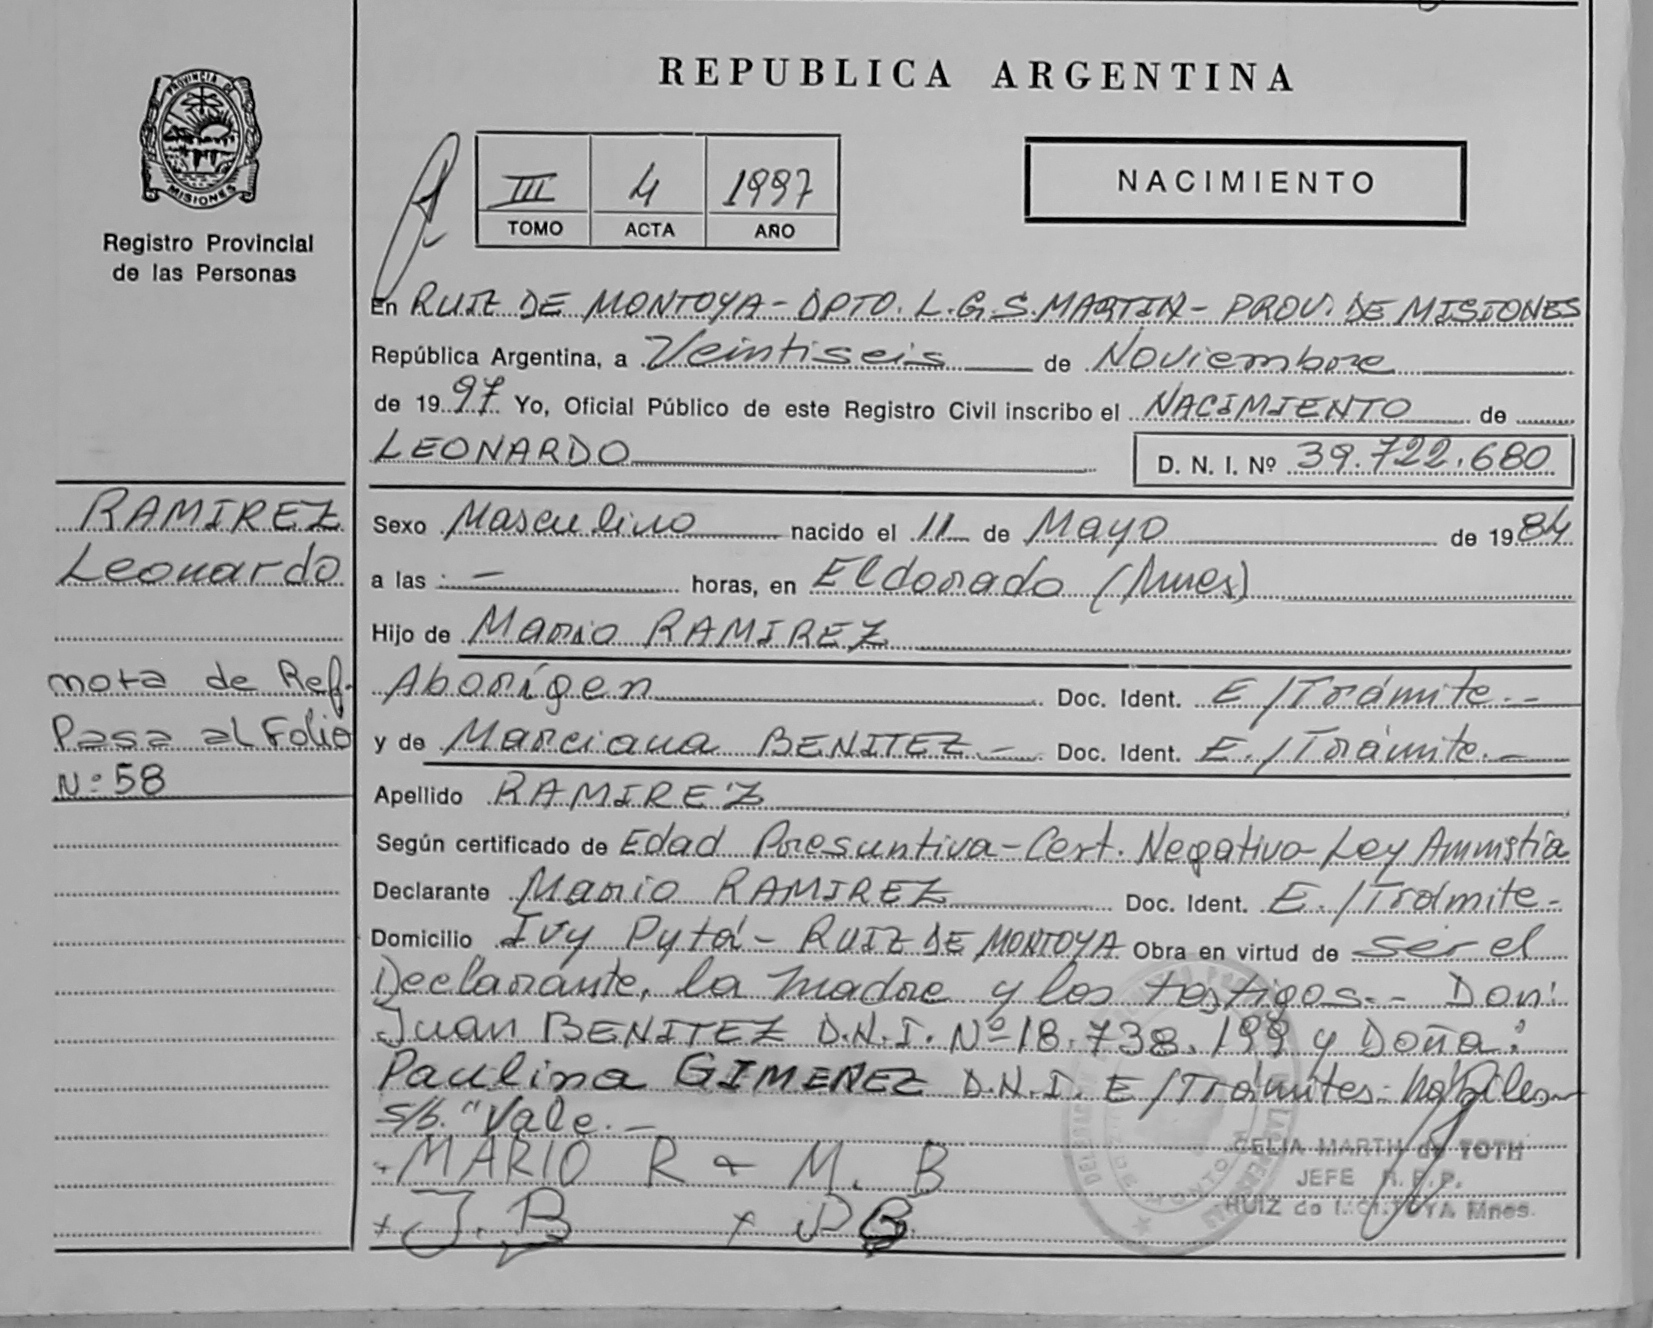 REPUBLICA ARGENTINA
PROVINCIA DE
MISIONES
Registro Provincial
de las Personas
III 4 1997
TOMO ACTA AÑO
NACIMIENTO
En RUIZ DE MONTOYA - DPTO. L.G.S. MARTIN - PROV. DE MISIONES
República Argentina, a Veintiseis de Noviembre
de 19 97 Yo, Oficial Público de este Registro Civil inscribo el NACIMIENTO de
LEONARDO
D. N. I. Nº 39.722.680
RAMIREZ
Leonardo
Sexo Masculino nacido el 11 de Mayo de 19 84
a las : — horas, en Eldorado (Mnes)
Hijo de Mario RAMIREZ
nota de Ref.
Pasa al Folio
Nº 58
Aborígen Doc. Ident. E/Trámite.-
y de Marciana BENITEZ.- Doc. Ident. E./Trámite.-
Apellido RAMIREZ
Según certificado de Edad Presuntiva-Cert. Negativo-Ley Amnistía
Declarante Mario RAMIREZ Doc. Ident. E./Trámite-
Domicilio Ivy Pytá - RUIZ DE MONTOYA Obra en virtud de ser el
Declarante, la madre y los testigos.- Don:
Juan BENITEZ D.N.I. Nº 18.738.199 y Doña:
Paulina GIMENEZ D.N.I. E/Trámites-
s/b. "Vale.-
MARIO R + M. B
+ J. B + P
CELIA MARTH de TOTH
JEFE R.P.P.
RUIZ de MONTOYA Mnes.